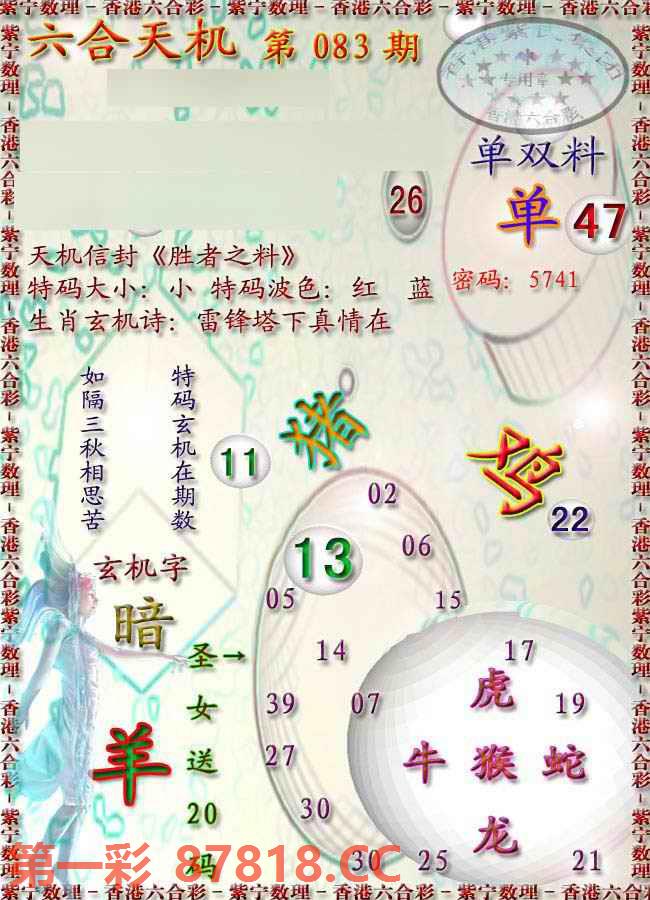 紫宁数理－香港六合彩－紫宁数理－香港六合彩－紫宁数理－香港六合彩
六合天机 第 083 期
香港紫民集团
专用章
香港六合彩
单双料
单 47
26
天机信封《胜者之料》
特码大小：小 特码波色：红 蓝
密码：5741
生肖玄机诗：雷锋塔下真情在
如隔三秋相思苦
特码玄机在期数
11
猪
鸡
22
02
13
06
05
15
玄机字
暗
圣女送20码
→
14
17
39
07
虎
19
羊
27
牛 猴 蛇
30
龙
30
25
21
第一彩 87818.CC
紫宁数理－香港六合彩－紫宁数理－香港六合彩－紫宁数理－香港六合彩